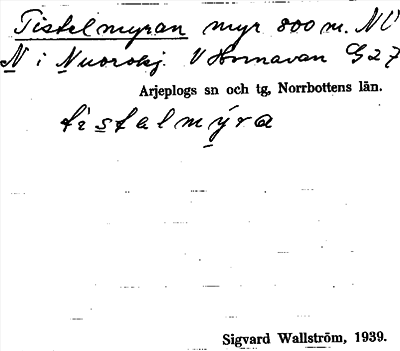 Tistelmyran myr 800 m. NV
N i Nuorokj. V Hornavan G27
Arjeplogs sn och tg, Norrbottens län.
tistalmýra
Sigvard Wallström, 1939.